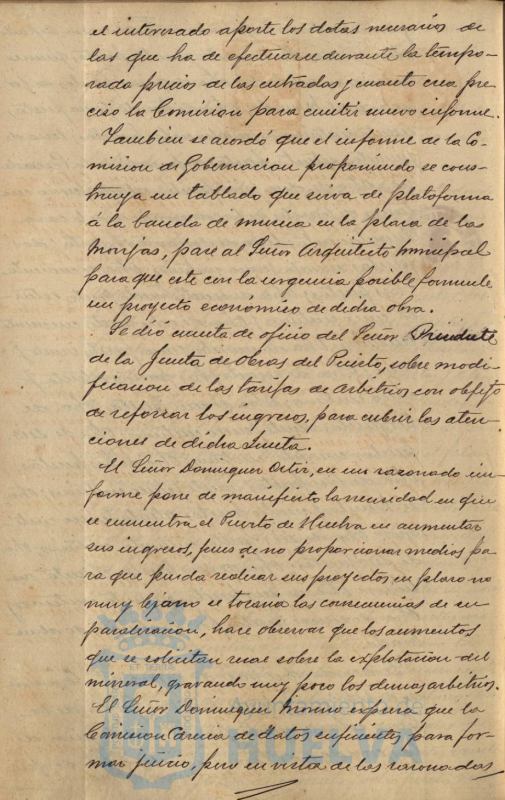 el interesado aporte los datos necesarios de
las que ha de efectuarse durante la tempo-
rada precios de las entradas y cuanto crea pre
ciso la Comision para emitir nuevo informe.
Tambien se acordó que el informe de la Co-
mision de Gobernacion proponiendo se cons-
truya un tablado que sirva de plataforma
á la banda de musica en la plaza de las
Monjas, pase al Señor Arquitecto Municipal
para que este con la urgencia posible formule
un proyecto económico de dicha obra.
Se dió cuenta de oficio del Señor Presidente
de la Junta de Obras del Puerto, sobre modi-
ficacion de las tarifas de Arbitrios con objeto
de reforzar los ingresos, para cubrir las aten-
ciones de dicha Junta.
El Señor Dominguez Ortiz, en un razonado in-
forme pone de manifiesto la necesidad en que
se encuentra el Puerto de Huelva en aumentar
sus ingresos, pues de no proporcionar medios pa
ra que pueda realizar sus proyectos en plazo no
muy lejano se tocaria las consecuencias de su
paralizacion, hace observar que los aumentos
que se solicitan recae sobre la explotacion del
mineral, gravando muy poco los demas arbitrios.
El Señor Dominguez expresa que la
Comision Carecia de datos suficientes para for-
mar juicio, pero en vista de las razonadas
HUELVA